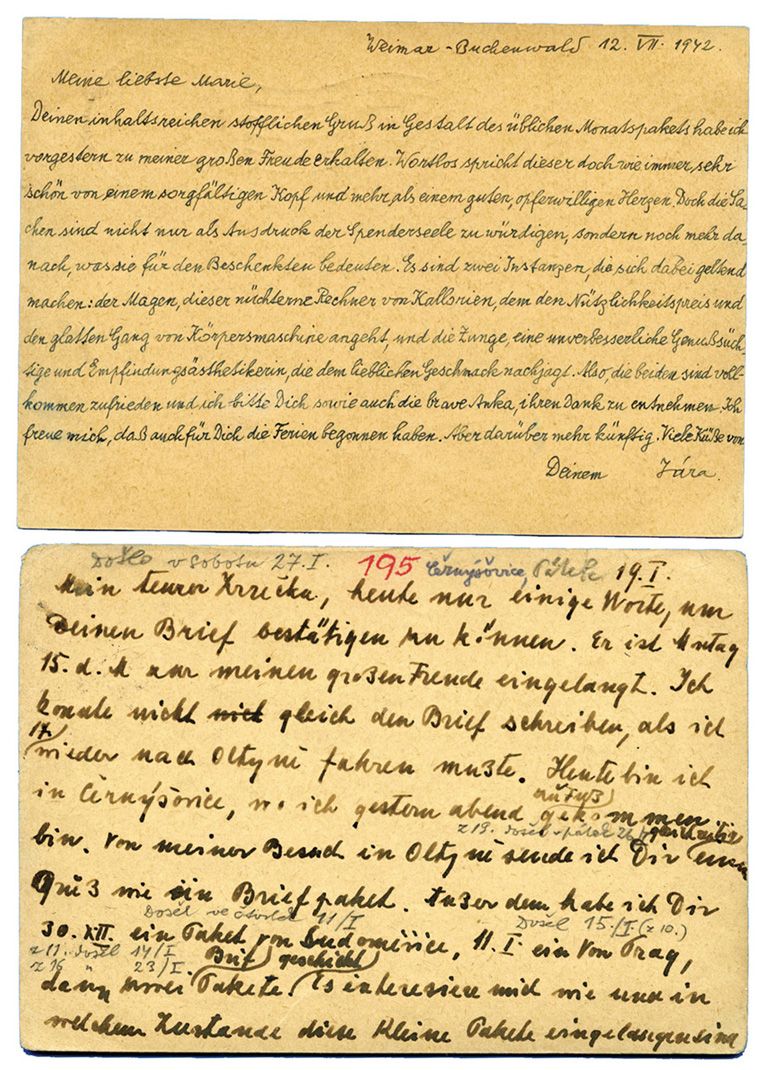 Weimar - Buchenwald 12. VII. 1942.
Meine liebste Marie,
Deinen inhaltsreichen stofflichen Gruß in Gestalt des üblichen Monatspakets habe ich
vorgestern zu meiner großen Freude erhalten. Wortlos spricht dieser doch wie immer, sehr
schön von einem sorgfältigen Kopf und mehr als einem guten, opferwilligen Herzen. Doch die Sa-
chen sind nicht nur als Ausdruck der Spenderseele zu würdigen, sondern noch mehr da-
nach, was sie für den Beschenkten bedeuten. Es sind zwei Instanzen, die sich dabei geltend
machen: der Magen, dieser nüchterne Rechner von Kallorien, dem den Nützlichkeitspreis und
den glatten Gang von Körpersmaschine angeht, und die Zunge, eine unverbesserliche Genußsüch-
tige und Empfindungsästhetikerin, die dem lieblichen Geschmack nachjagt. Also, die beiden sind voll-
kommen zufrieden und ich bitte Dich sowie auch die brave Anka, ihren Dank zu entnehmen. Ich
freue mich, daß auch für Dich die Ferien begonnen haben. Aber darüber mehr künftig. Viele Küße von
Deinem Jára.
Došlo v sobotu 27. I. 195 Černýšovice, Pátek 19. I.
Mein teurer heute nur einige Worte, um
Deinen Brief bestätigen zu können. Er ist Montag
15. d. M zur meinen großen Freude eingelangt. Ich
konnte nicht nict gleich den Brief schreiben, als ich
17.
wieder nach Oltyně fahren mußte. Heute bin ich
in Černýšovice, wo ich gestern abend gekommen
z 19. došel pátek
bin. Von meiner Besuch in Oltyně sende ich Dir einen
Gruß wie ein Briefpaket. Außer dem habe ich Dir
Došel ve čtvrtek 11/I Došel 15./I (z 10.)
30. XII. ein Paket von Sudoměřice, 11. I. ein von Prag,
z 11. došel 14/I
z 16 23/I Brief geschickt
dann zwei Pakete. Es interesiere mich wie und in
welchem Zustande diese kleine Pakete eingelangen sind